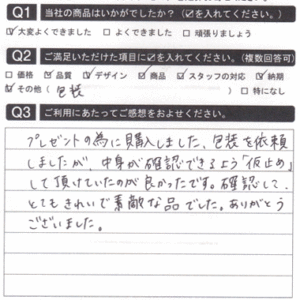 Q1 当社の商品はいかがでしたか？（☑を入れてください。）
☑大変よくできました □よくできました □頑張りましょう
Q2 ご満足いただけた項目に☑を入れてください。（複数回答可）
□価格 ☑品質 ☑デザイン ☑商品 ☑スタッフの対応 ☑納期
☑その他（包装） □特になし
Q3 ご利用にあたってご感想をおよせください。
プレゼントの為に購入しました。包装を依頼
しましたが、中身が確認できるよう「仮止め」
して頂けていたのが良かったです。確認して、
とてもきれいで素敵な品でした。ありがとう
ございました。